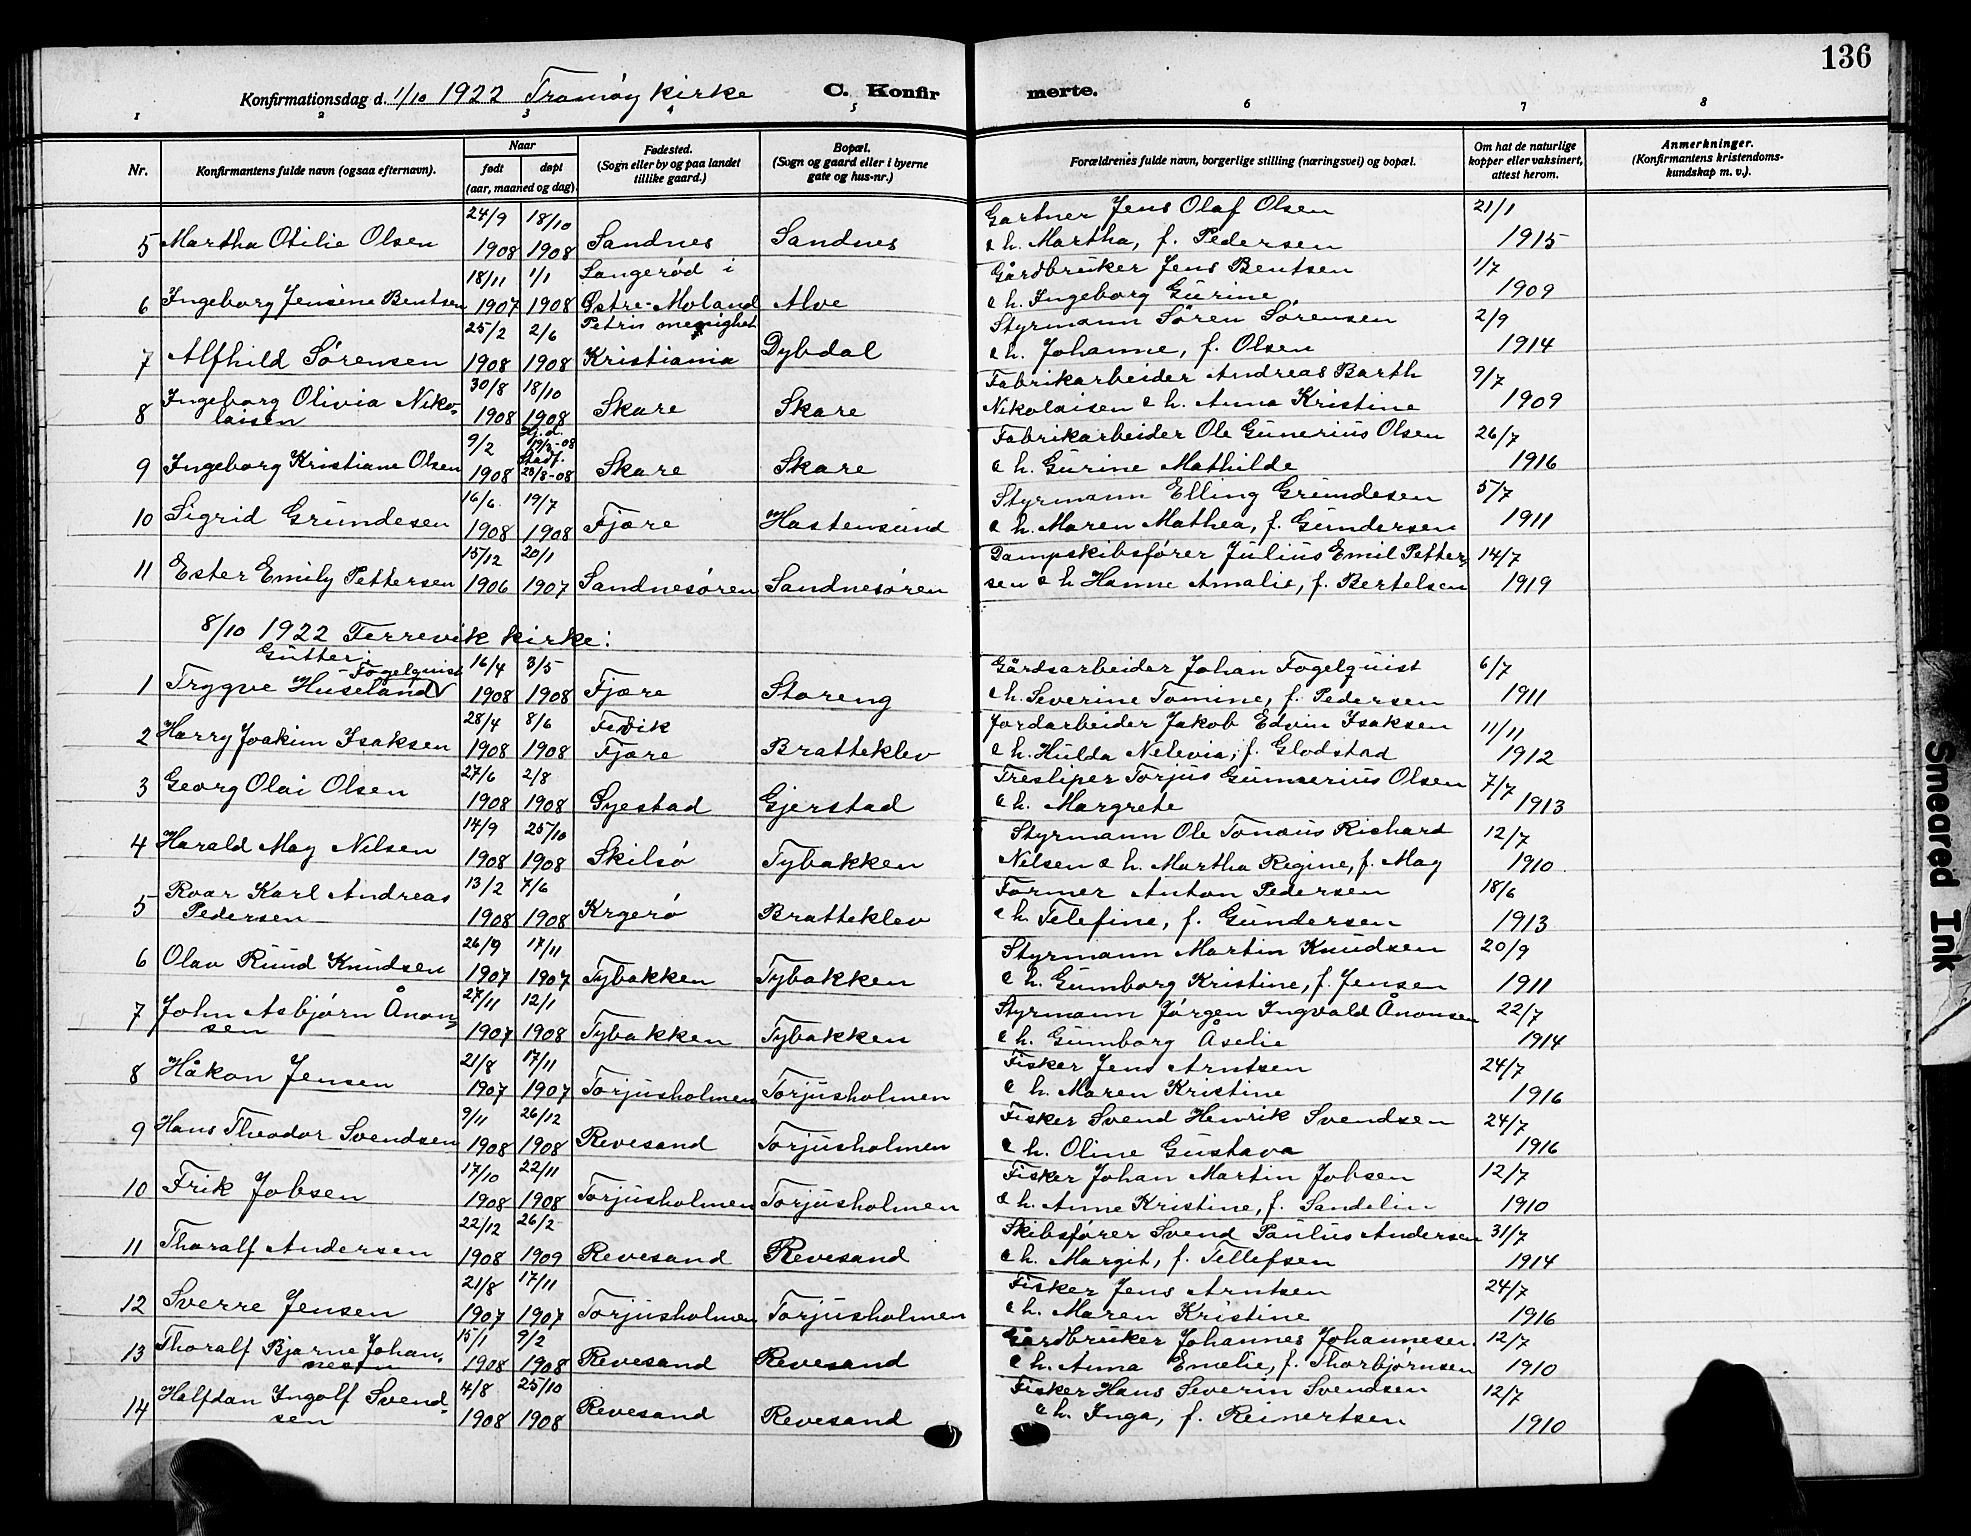 136
Konfirmationsdag d. 1/10 1922 Tromøy kirke C. Konfirmerte.
1 2 3 4 5 6 7 8
Nr. Konfirmantens fulde navn (ogsaa efternavn). Naar født døpt (aar, maaned og dag) Fødested. (Sogn eller by og paa landet tillike gaard.) Bopæl. (Sogn og gaard eller i byerne gate og hus-nr.) Forældrenes fulde navn, borgerlige stilling (næringsvei) og bopæl. Om hat de naturlige kopper eller vaksinert, attest herom. Anmerkninger. (Konfirmantens kristendomskundskap m. v.).
24/9 18/10 Gartner Jens Olaf Olsen 21/1
5 Martha Otilie Olsen 1908 1908 Sandnes Sandnes & h. Martha, f. Pedersen 1915
18/11 1/1 Langerød i Gårdbruker Jens Bentsen 1/7
6 Ingeborg Jensine Bentsen 1907 1908 Østre-Moland Alve & h. Ingeborg Gurine 1909
25/2 2/6 Petris menighet Styrmann Sören Sörensen 2/9
7 Alfhild Sørensen 1908 1908 Kristiania Dybdal & h. Johanne, f. Olsen 1914
Ingeborg Olivia Niko- 30/8 18/10 Fabrikarbeider Andreas Barth 9/7
8 laisen 1908 1908 Skare Skare Nikolaisen & h. Anna Kristine 1909
9/2 Hj.d. 19/2-08 Stadf. Fabrikarbeider Ole Gunerius Olsen 26/7
9 Ingeborg Kristiane Olsen 1908 23/8-08 Skare Skare & h. Gurine Mathilde 1916
16/6 19/7 Styrmann Elling Grundesen 5/7
10 Sigrid Grundesen 1908 1908 Fjære Hastensund & h. Maren Mathea, f. Gundersen 1911
15/12 20/1 Dampskibsfører Julius Emil Petter- 14/7
11 Ester Emily Pettersen 1906 1907 Sandnesøren Sandnesøren sen & h Hanne Amalie, f. Bertelsen 1919
8/10 1922 Færrevik kirke:
Gutter:
Fogelquist 16/4 3/5 Gårdsarbeider Johan Fogelquist 6/7
1 Trygve Huseland 1908 1908 Fjære Storeng & h. Severine Tomine, f. Pedersen 1911
28/4 8/6 Fevik Jordarbeider Jakob Edvin Isaksen 11/11
2 Harry Joakim Isaksen 1908 1908 Fjære Bratteklev & h. Hulda Nelevia, f. Glodstad 1912
27/6 2/8 Tresliper Torjus Gunnerius Olsen 7/7
3 Georg Olai Olsen 1908 1908 Syestad Gjerstad & h. Margrete 1913
14/9 25/10 Styrmann Ole Tonæus Richard 12/7
4 Harald May Nilsen 1908 1908 Skilsö Tybakken Nilsen & h. Martha Regine, f. May 1910
Roar Karl Andreas 13/2 7/6 Former Anton Pedersen 18/6
5 Pedersen 1908 1908 Krgerö Bratteklev & h. Telefine, f. Gundersen 1913
26/9 17/11 Styrmann Martin Knudsen 20/9
6 Olav Ruud Knudsen 1907 1907 Tybakken Tybakken & h. Gumborg Kristine, f. Jensen 1911
John Asbjørn Ånon- 27/11 12/1 Styrmann Jörgen Ingvald Ånonsen 22/7
7 sen 1907 1908 Tybakken Tybakken & h. Gumborg Åselie 1914
21/8 17/11 Fisker Jens Arntsen 24/7
8 Håkon Jensen 1907 1907 Torjusholmen Torjusholmen & h. Maren Kristine 1916
9/11 26/12 Fisker Svend Henrik Svendsen 24/7
9 Hans Theodor Svendsen 1908 1908 Revesand Torjusholmen & h. Oline Gustava 1916
17/10 22/11 Fisker Johan Martin Jobsen 12/7
10 Frik Jobsen 1908 1908 Torjusholmen Torjusholmen & h. Anne Kristine, f. Sandelin 1910
22/12 26/2 Skibsfører Svend Paulus Andersen 31/7
11 Thoralf Andersen 1908 1909 Revesand Revesand & h. Margit, f. Tellefsen 1914
21/8 17/11 Fisker Jens Arntsen 24/7
12 Sverre Jensen 1907 1907 Torjusholmen Torjusholmen & h. Maren Kristine 1916
Thoralf Bjarne Johan- 15/1 9/2 Gårdbruker Johannes Johannesen 12/7
13 nesen 1908 1908 Revesand Revesand & h. Anna Emelie, f. Thorbjørnsen 1910
Halfdan Ingolf Svend- 4/8 25/10 Fisker Hans Severin Svendsen 12/7
14 sen 1908 1908 Revesand Revesand & h. Inga, f. Reinertsen 1910
Smeared Ink